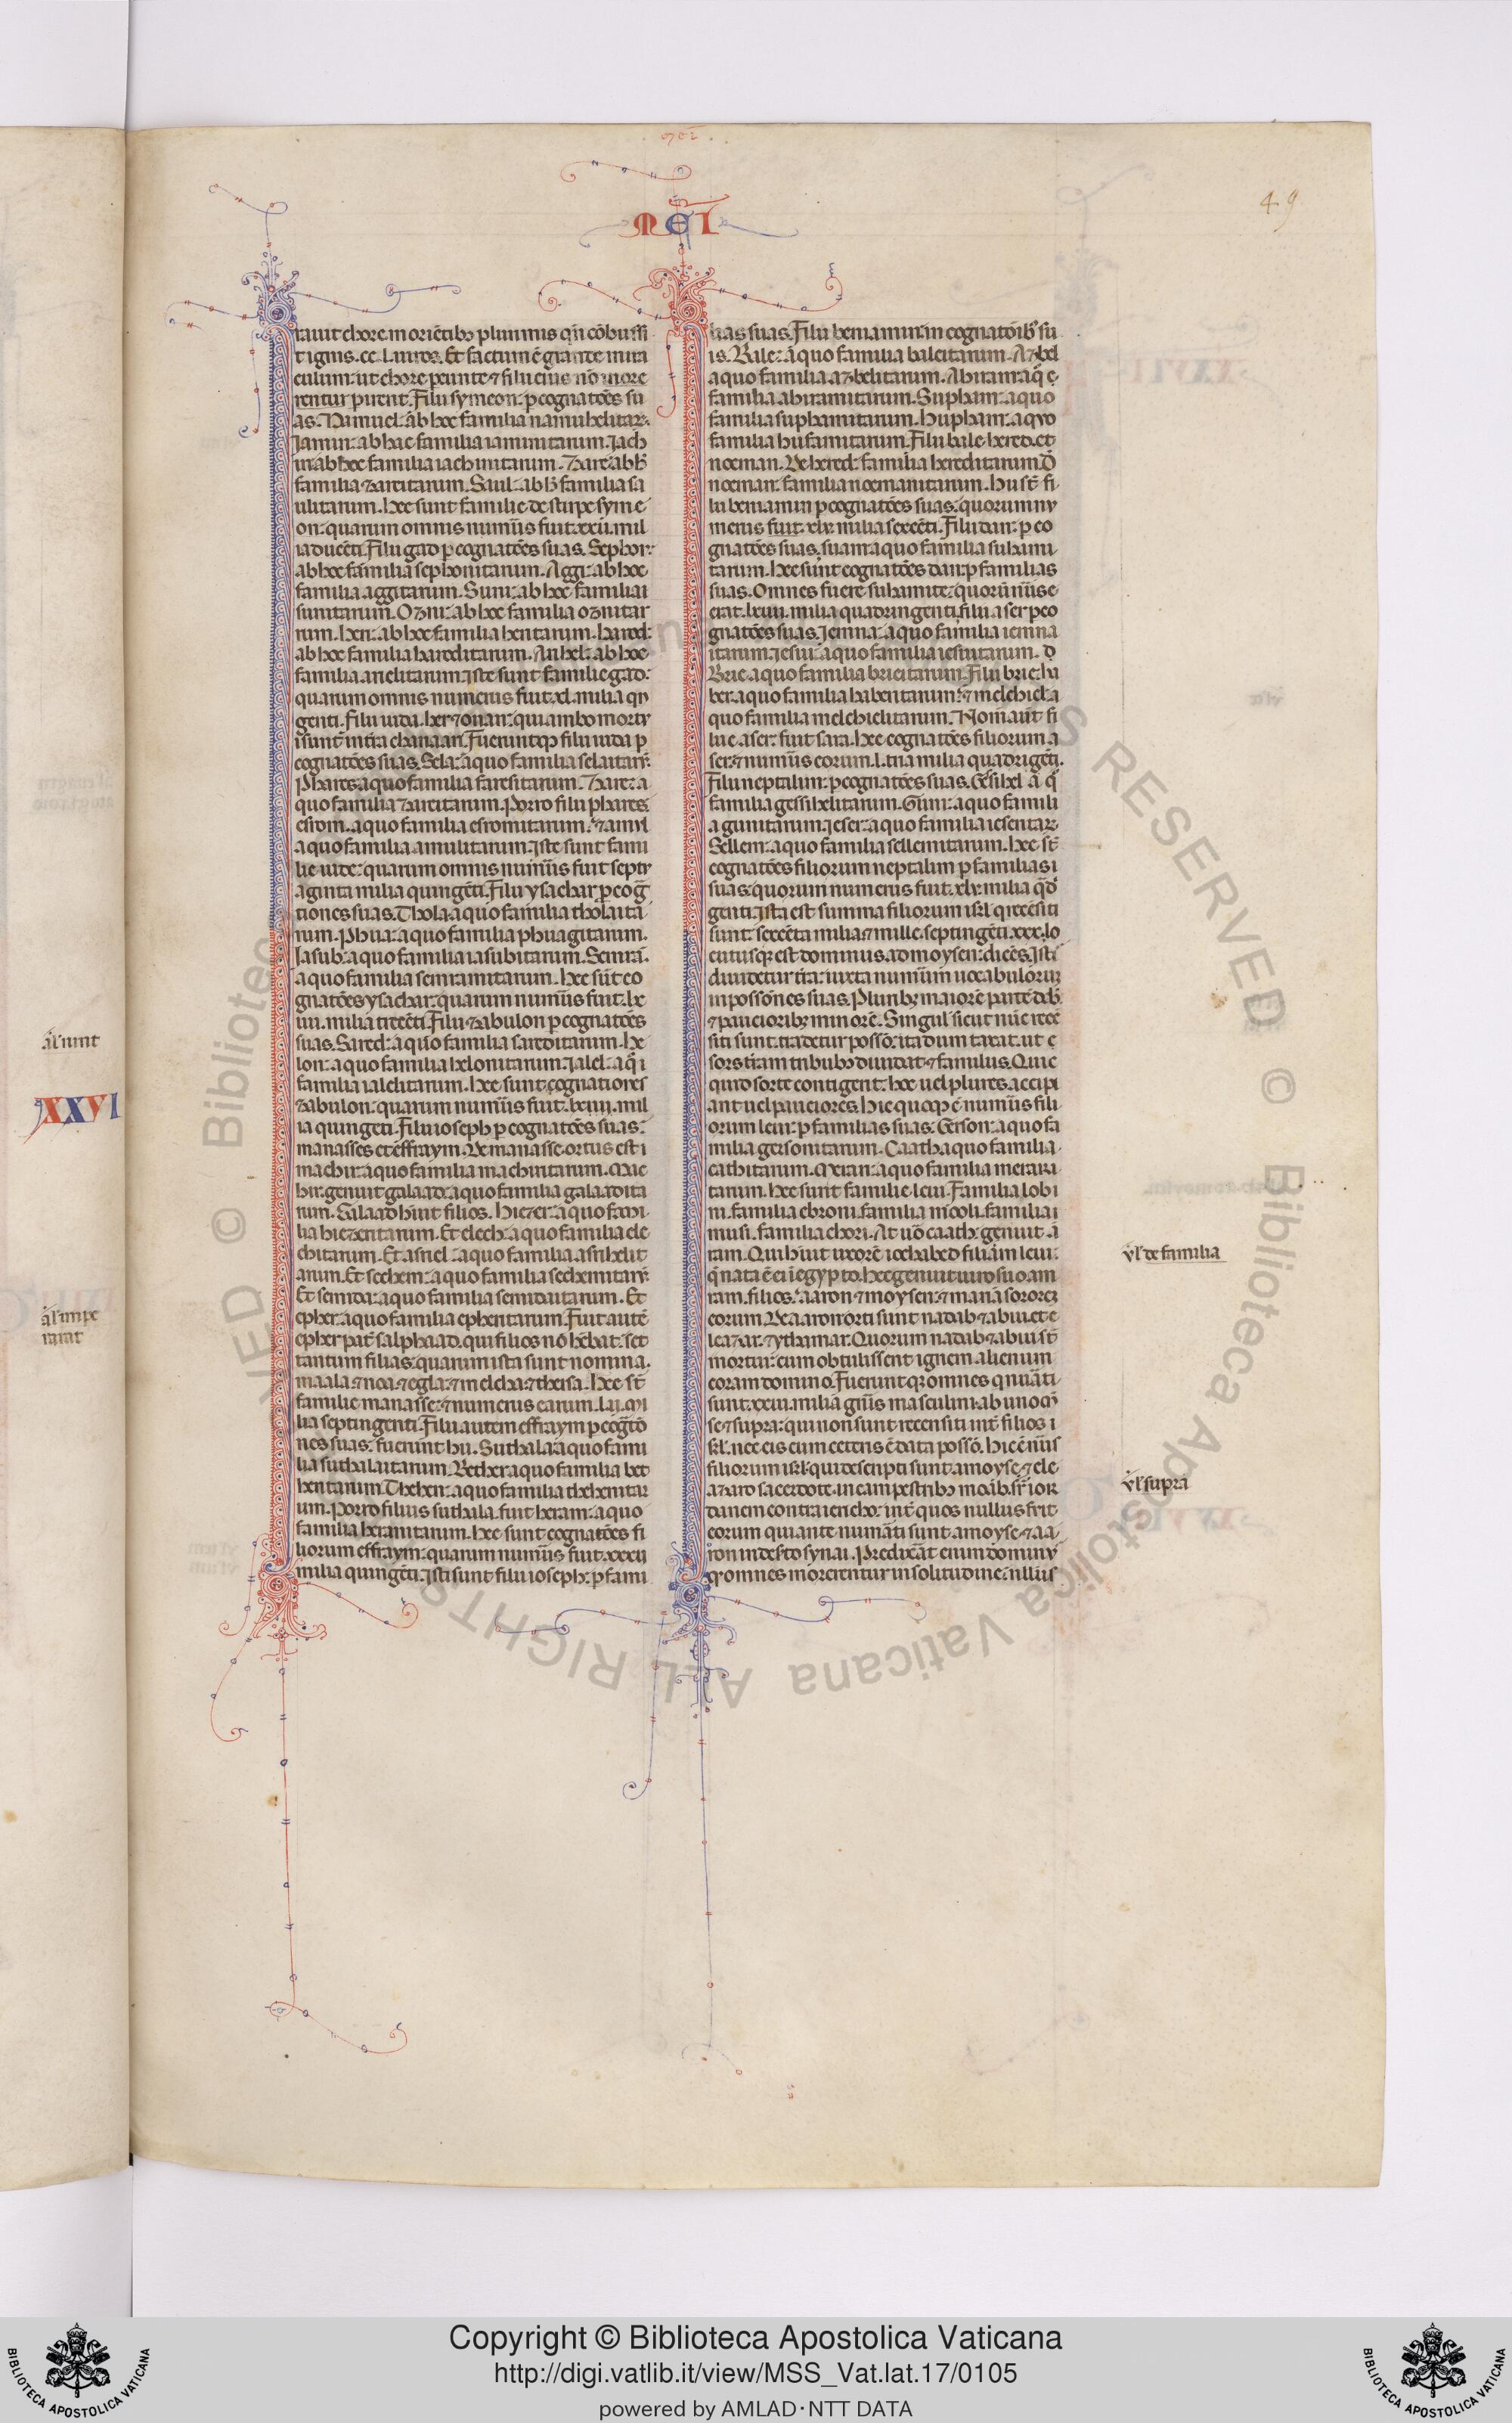 moĩ
49
MOI
rauit chore morientib; plurimis qñ cōbussi
t ignis .cc.l. uiros. Et factum ē grande mira
culum: ut chore pereunte ⁊ filii eius nō more
rentur pirent. Filii symeon: p cognatōes su
as. Namuel: ab hoc familia namuhelitar.
Iamin: ab hac familia iaminitarum. Iach
in: ab hoc familia iachinitarum. Zare: ab h̄
familia zareitarum. Saul: ab h̄ familia sa
ulitarum. Hee sunt familie de stirpe syme
on: quarum omnis num̄us fuit .xxii. mil
ia ducēti. Filii gad p cognatōes suas. Sephon:
ab hoc familia sephonitarum. Aggi: ab hoc
familia aggitarum. Suni: ab hoc familia i
sunitarum. Ozni: ab hoc familia oznitar
rum. Hen: ab hoc familia henitarum. Hared:
ab hoc familia hareditarum. Arihel: ab hoc
familia arielitarum. Iste sunt familie gad:
quarum omnis numerus fuit .xl. milia qn
genti. Filii iuda. her ⁊ onan: qui ambo mortv
i sunt in tr̄a chanaan. Fueruntq; filii iuda p
cognatōes suas. Sela: a quo familia selaitar.
Phares a quo familia faresitarum. Zare: a
quo familia zareitarum. Porro filii phares.
esrom. a quo familia esromitarum. ⁊ amul
a quo familia amulitarum. Iste sunt fami
lie iude: quarum omnis num̄us fuit septv
aginta milia quingēti. Filii ysachar p cog̃
tiones suas. Thola: a quo familia tholaita
rum. Phua: a quo familia phuagitarum.
Iasub: a quo familia iasubitarum. Semrā.
a quo familia semranitarum. Hee sūt co
gnatōes ysachar: quarum num̄us fuit .lx
iiii. milia trecēti. Filii zabulon p cognatōes
suas. Sared: a quo familia sareditarum. He
lon: a quo familia helonitarum. Ialel: a q̄ i
familia ialelitarum. Hee sunt cognationes
zabulon: quarum num̄us fuit .lxiiii. mil
ia quingeti. Filii ioseph p cognatōes suas:
manasses et effraym. De manasse. ortus est i
machir: a quo familia machiritarum. Mac
hir. genuit galaad: a quo familia galaadita
rum. Galaad h̄uit filios. Hiezer: a quo fami
lia hiezeritarum. Et elech: a quo familia ele
chitarum. Et asriel: a quo familia asrihelit
arum. Et sechem: a quo familia sechemitar.
Et semida: a quo familia semidaitarum. Et
epher: a quo familia epheritarum. Fuit autē
epher pat̄ salphaad. qui filios nō hēbat. set
tantum filias: quarum ista sunt nomina.
maala ⁊ noa ⁊ egla: ⁊ melcha ⁊ thersa. Hee st̄
familie manasse: ⁊ numerus earum .l.ii. mi
lia septingenti. Filii autem effraym p cog̃tō
nes suas: fuerunt hii. Suthala: a quo fami
lia suthalaitarum. Bether a quo familia bet
heritarum. Thehen: a quo familia thehenitar
um. Porro filius suthala. fuit heram: a quo
familia heranitarum. Hee sunt cognatōes fi
liorum effraym: quarum num̄us fuit .xxxii
milia quingēti. Isti sunt filii ioseph: p fami
lias suas. Filii beniamin: in cognatōib; su
is. Bale: a quo familia baleitarum. Azbel
a quo familia azbelitarum. Ahiram: a q̄ e.
familia ahiramitarum. Supham: a quo
familia suphamitarum. Hupham: a qvo
familia hufamitarum. Filii bale. hered. et
noeman. De hered: familia hereditarum. D̄
noeman: familia noemanitarum. Hii st̄ fi
lii beniamin p cognatōes suas: quorum nv
merus fuit .xlv. milia sexcēti. Filii dan: p co
gnatōes suas. suam: a quo familia suhami
tarum. Hee sunt cognatōes dan: p familias
suas. Omnes fuere suhamite: quorū nūs e
erat .lxiiii. milia quadringenti. filii aser p co
gnatōes suas. Iemna: a quo familia iemna
itarum. Iesui: a quo familia iesuitarum. D
Brie. a quo familia brieitarum. Filii brie: ha
ber. a quo familia haberitarum: ⁊ melchiel: a
quo familia melchielitarum. Nom̄ aut̄ fi
lie aser. fuit sara. Hee cognatōes filiorum a
ser: ⁊ num̄us eorum .l. tria milia quadrigēti.
Filii neptalim: p cognatōes suas. Gesihel a q̄
familia gessihelitarum. Guni: a quo famili
a gunitarum. Ieser: a quo familia ieseritar.
Sellem: a quo familia sellemitarum. Hee st̄
cognatōes filiorum neptalim p familias i
suas: quorum numerus fuit .xlv. milia q̄d
genti. Ista est summa filiorum isrl̄ q recēsiti
sunt: sexcēta milia ⁊ mille. septingēti .xxx. lo
cutusq; est dominus. ad moysen: dicēs. Isti
diuidetur tr̄a: iuxta num̄um uocabulorum
in possōnes suas. Plurib; maiorē partē dab̄
⁊ paucioribz minorē. Singul sicut nūc rece
siti sunt: tradetur possō: ita dum taxat. ut e
sors tr̄am tribub; diuidat ⁊ familiis. Quic
quid sorte contigerit. hoc uel plures accipi
ant uel pauciores. Hic quoq; ē num̄us fili
orum leui: p familias suas. Gerson: a quo fa
milia gersonitarum. Caath: a quo familia.
cathitarum. Merari: a quo familia merari
tarum. Hee sunt familie. leui. Familia lobi
ni. familia ebroni. familia mooli. familia i
musi. familia chori. At uō caath: genuit a
ram. Qui h̄uit uxorē iochabed filiam leui:
q̄ nata ē ei ī egypto. Hec genuit uiro suo am
ram. filios. aaron ⁊ moysen: ⁊ maria sororez
eorum. De aaron orti sunt nadab ⁊ abiu. et e
leazar. ⁊ ythamar. Quorum nadab ⁊ abiu st̄
mortui: cum obtulissent ignem alienum
coram domino. Fueruntq; omnes q num̄ati
sunt: xxiii. milia gn̄is masculini: ab uno m̄
se ⁊ supra: qui non sunt recensiti int̄ filios i
srl̄. nec eis cum ceteris ē data possō. Hic ē nūs
filiorum isrl̄. qui descripti sunt: a moyse. ⁊ ele
azaro sacerdote. in campestrib; moab. sr̄ ior
danem contra iericho: int̄ quos nullus fuit
eorum qui ante num̄ati sunt. a moyse ⁊ aa
ron in des̄to synai. Predixāt enim dominv
s. q̄ omnes morerentur in solitudine: nllūs
al' iunt
XXVI
al' impe
rarat
vl' de familia
vl' supra
Copyright © Biblioteca Apostolica Vaticana
http://digi.vatlib.it/view/MSS_Vat.lat.17/0105
powered by AMLAD·NTT DATA
BIBLIOTECA APOSTOLICA VATICANA
BIBLIOTECA APOSTOLICA VATICANA